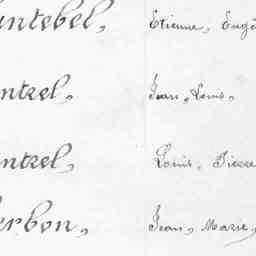 untebel, Etienne, Eugè
ntrel, Jean, Louis,
ntrel, Louis, Pierre
erbon, Jean, Marie,